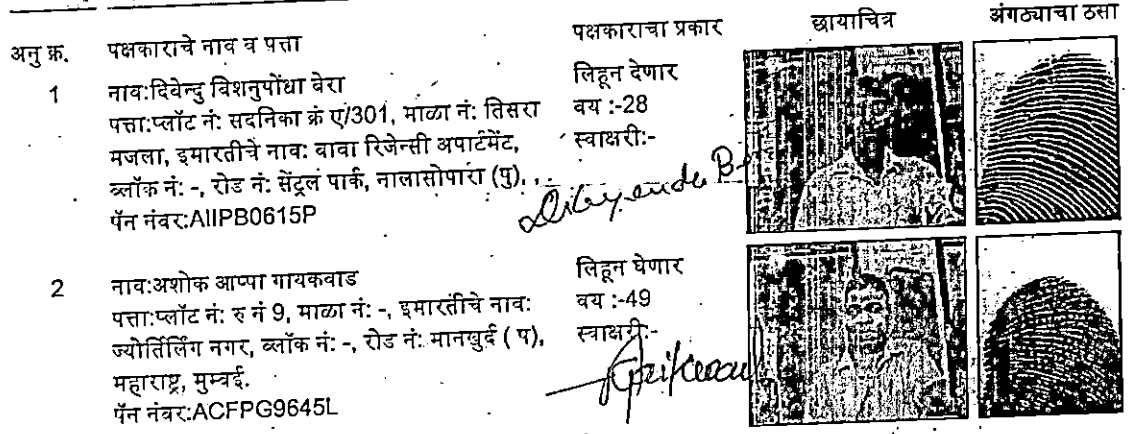 अनु क्र. पक्षकाराचे नाव व पत्ता पक्षकाराचा प्रकार छायाचित्र अंगठ्याचा ठसा
1 नाव:दिवेन्दु विशनुपोंधा बेरा
पत्ता:प्लॉट नं: सदनिका क्रं ए/301, माळा नं: तिसरा
मजला, इमारतीचे नाव: बाबा रिजेन्सी अपार्टमेंट,
ब्लॉक नं: -, रोड नं: सेंट्रल पार्क, नालासोपारा (पु), . .
पॅन नंबर:AIIPB0615P
लिहून देणार
वय :-28
स्वाक्षरी:-
2 नाव:अशोक आप्पा गायकवाड
पत्ता:प्लॉट नं: रु नं 9, माळा नं: -, इमारतीचे नाव:
ज्योर्तिलिंग नगर, ब्लॉक नं: -, रोड नं: मानखुर्द ( प),
महाराष्ट्र, मुम्बई.
पॅन नंबर:ACFPG9645L
लिहून घेणार
वय :-49
स्वाक्षरी:-